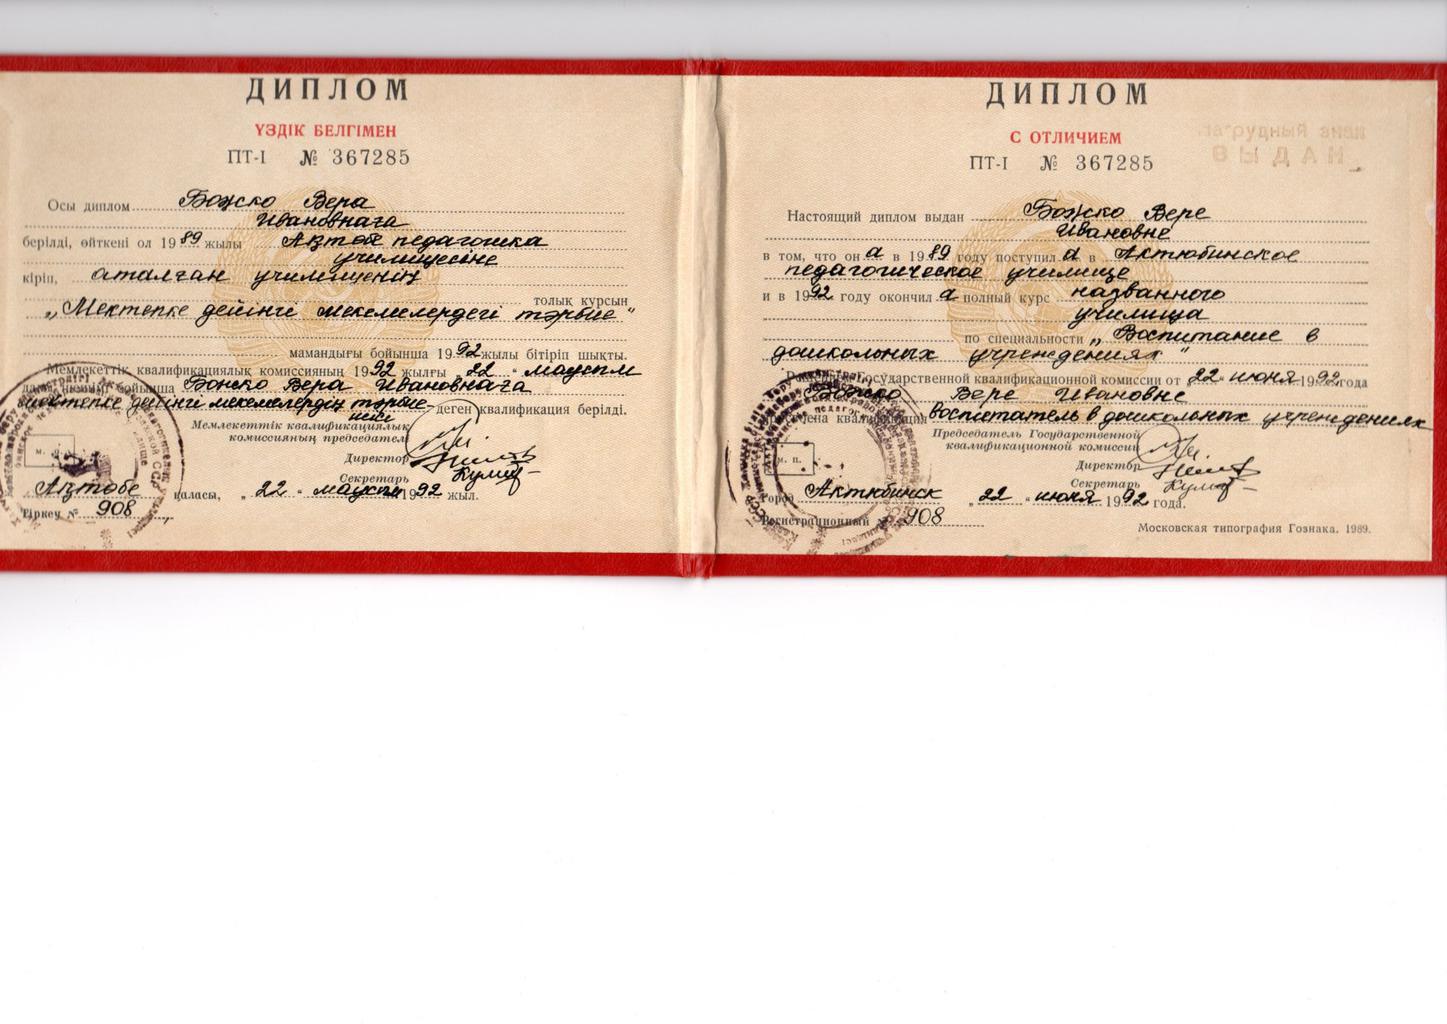 ДИПЛОМ
ҮЗДІК БЕЛГІМЕН
ПТ-I № 367285
Осы диплом Божко Вера
Ивановнаға
берілді, өйткені ол 1989 жылы Ақтөбе педагогика
училищесіне
кіріп, аталған училищенің
толық курсын
„Мектепке дейінгі мекемелердегі тәрбие"
мамандығы бойынша 1992 жылы бітіріп шықты.
Мемлекеттік квалификациялық комиссияның 1992 жылғы „22" маусым
бойынша Божко Вера Ивановнаға
мектепке дейінгі мекемелердің тәрбие-
шісі деген квалификация берілді.
Мемлекеттік квалификациялық
комиссияның председателі
Директор
Секретарь
м. п.
Ақтөбе қаласы, „22" маусым 1992 жыл.
Тіркеу № 908
ДИПЛОМ
С ОТЛИЧИЕМ
ПТ-I № 367285
Настоящий диплом выдан Божко Вере
Ивановне
в том, что он а в 1989 году поступил а в Актюбинское
педагогическое училище
и в 1992 году окончил а полный курс названного
училища
по специальности „Воспитание в
дошкольных учреждениях"
Решением Государственной квалификационной комиссии от 22 июня 1992 года
Божко Вере Ивановне
присвоена квалификация воспитатель в дошкольных учреждениях
Председатель Государственной
квалификационной комиссии
Директор
Секретарь
м. п.
Город Актюбинск „22" июня 1992 года.
Регистрационный № 908
Московская типография Гознака. 1989.